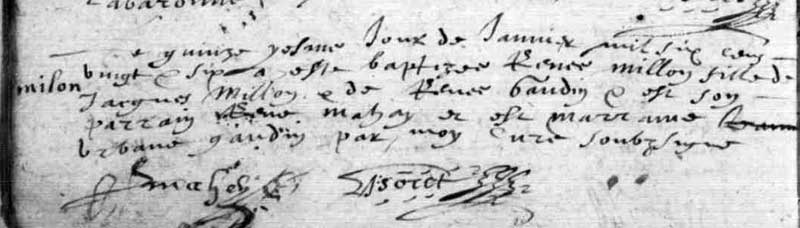 Le quinze yesme Jour de Janvier mil six cens
milon
vingt & six a este baptizee Renee millon fille de
Jacques Millon & de Renee Gaudin & est son
parrain Rene mahay et est marraine
Urbane gaudin par moy Cure soubzsigne
mahey